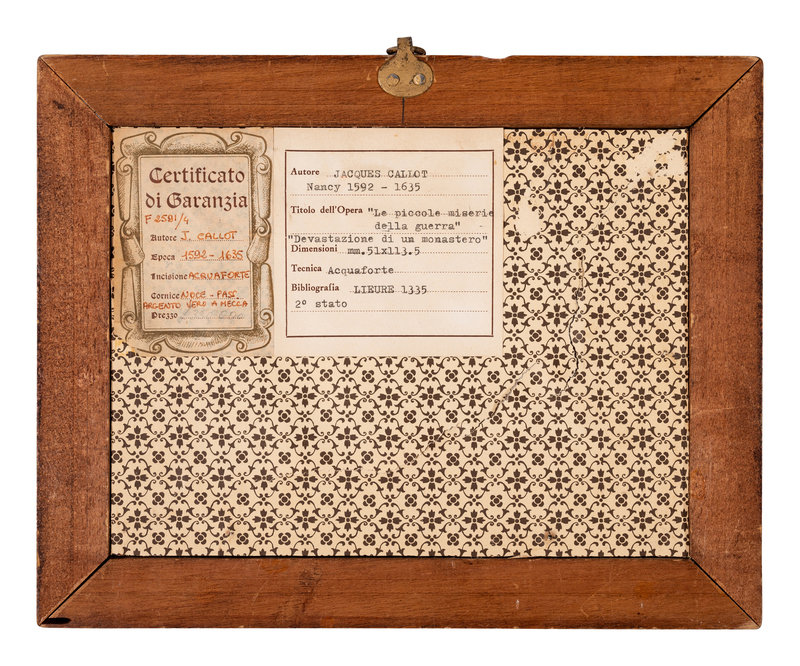 Certificato
di Garanzia
F 2581/4
Autore J. CALLOT
Epoca 1592-1635
Incisione ACQUAFORTE
Cornice NOCE - PASS.
ARGENTO VERO A MECCA
Prezzo
Autore JACQUES CALLOT
Nancy 1592 - 1635
Titolo dell'Opera "Le piccole miserie
della guerra" -
"Devastazione di un monastero"
Dimensioni mm.51x113.5
Tecnica Acquaforte
Bibliografia LIEURE 1335
2° stato